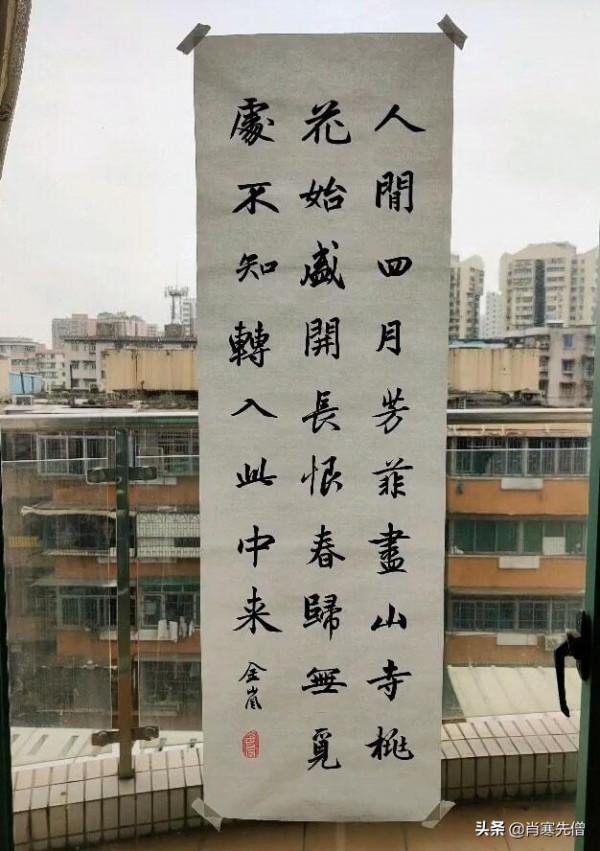 人間四月芳菲盡山寺桃
花始盛開長恨春歸無覓
處不知轉入此中来
金嵐
头条 @肖寒先僧